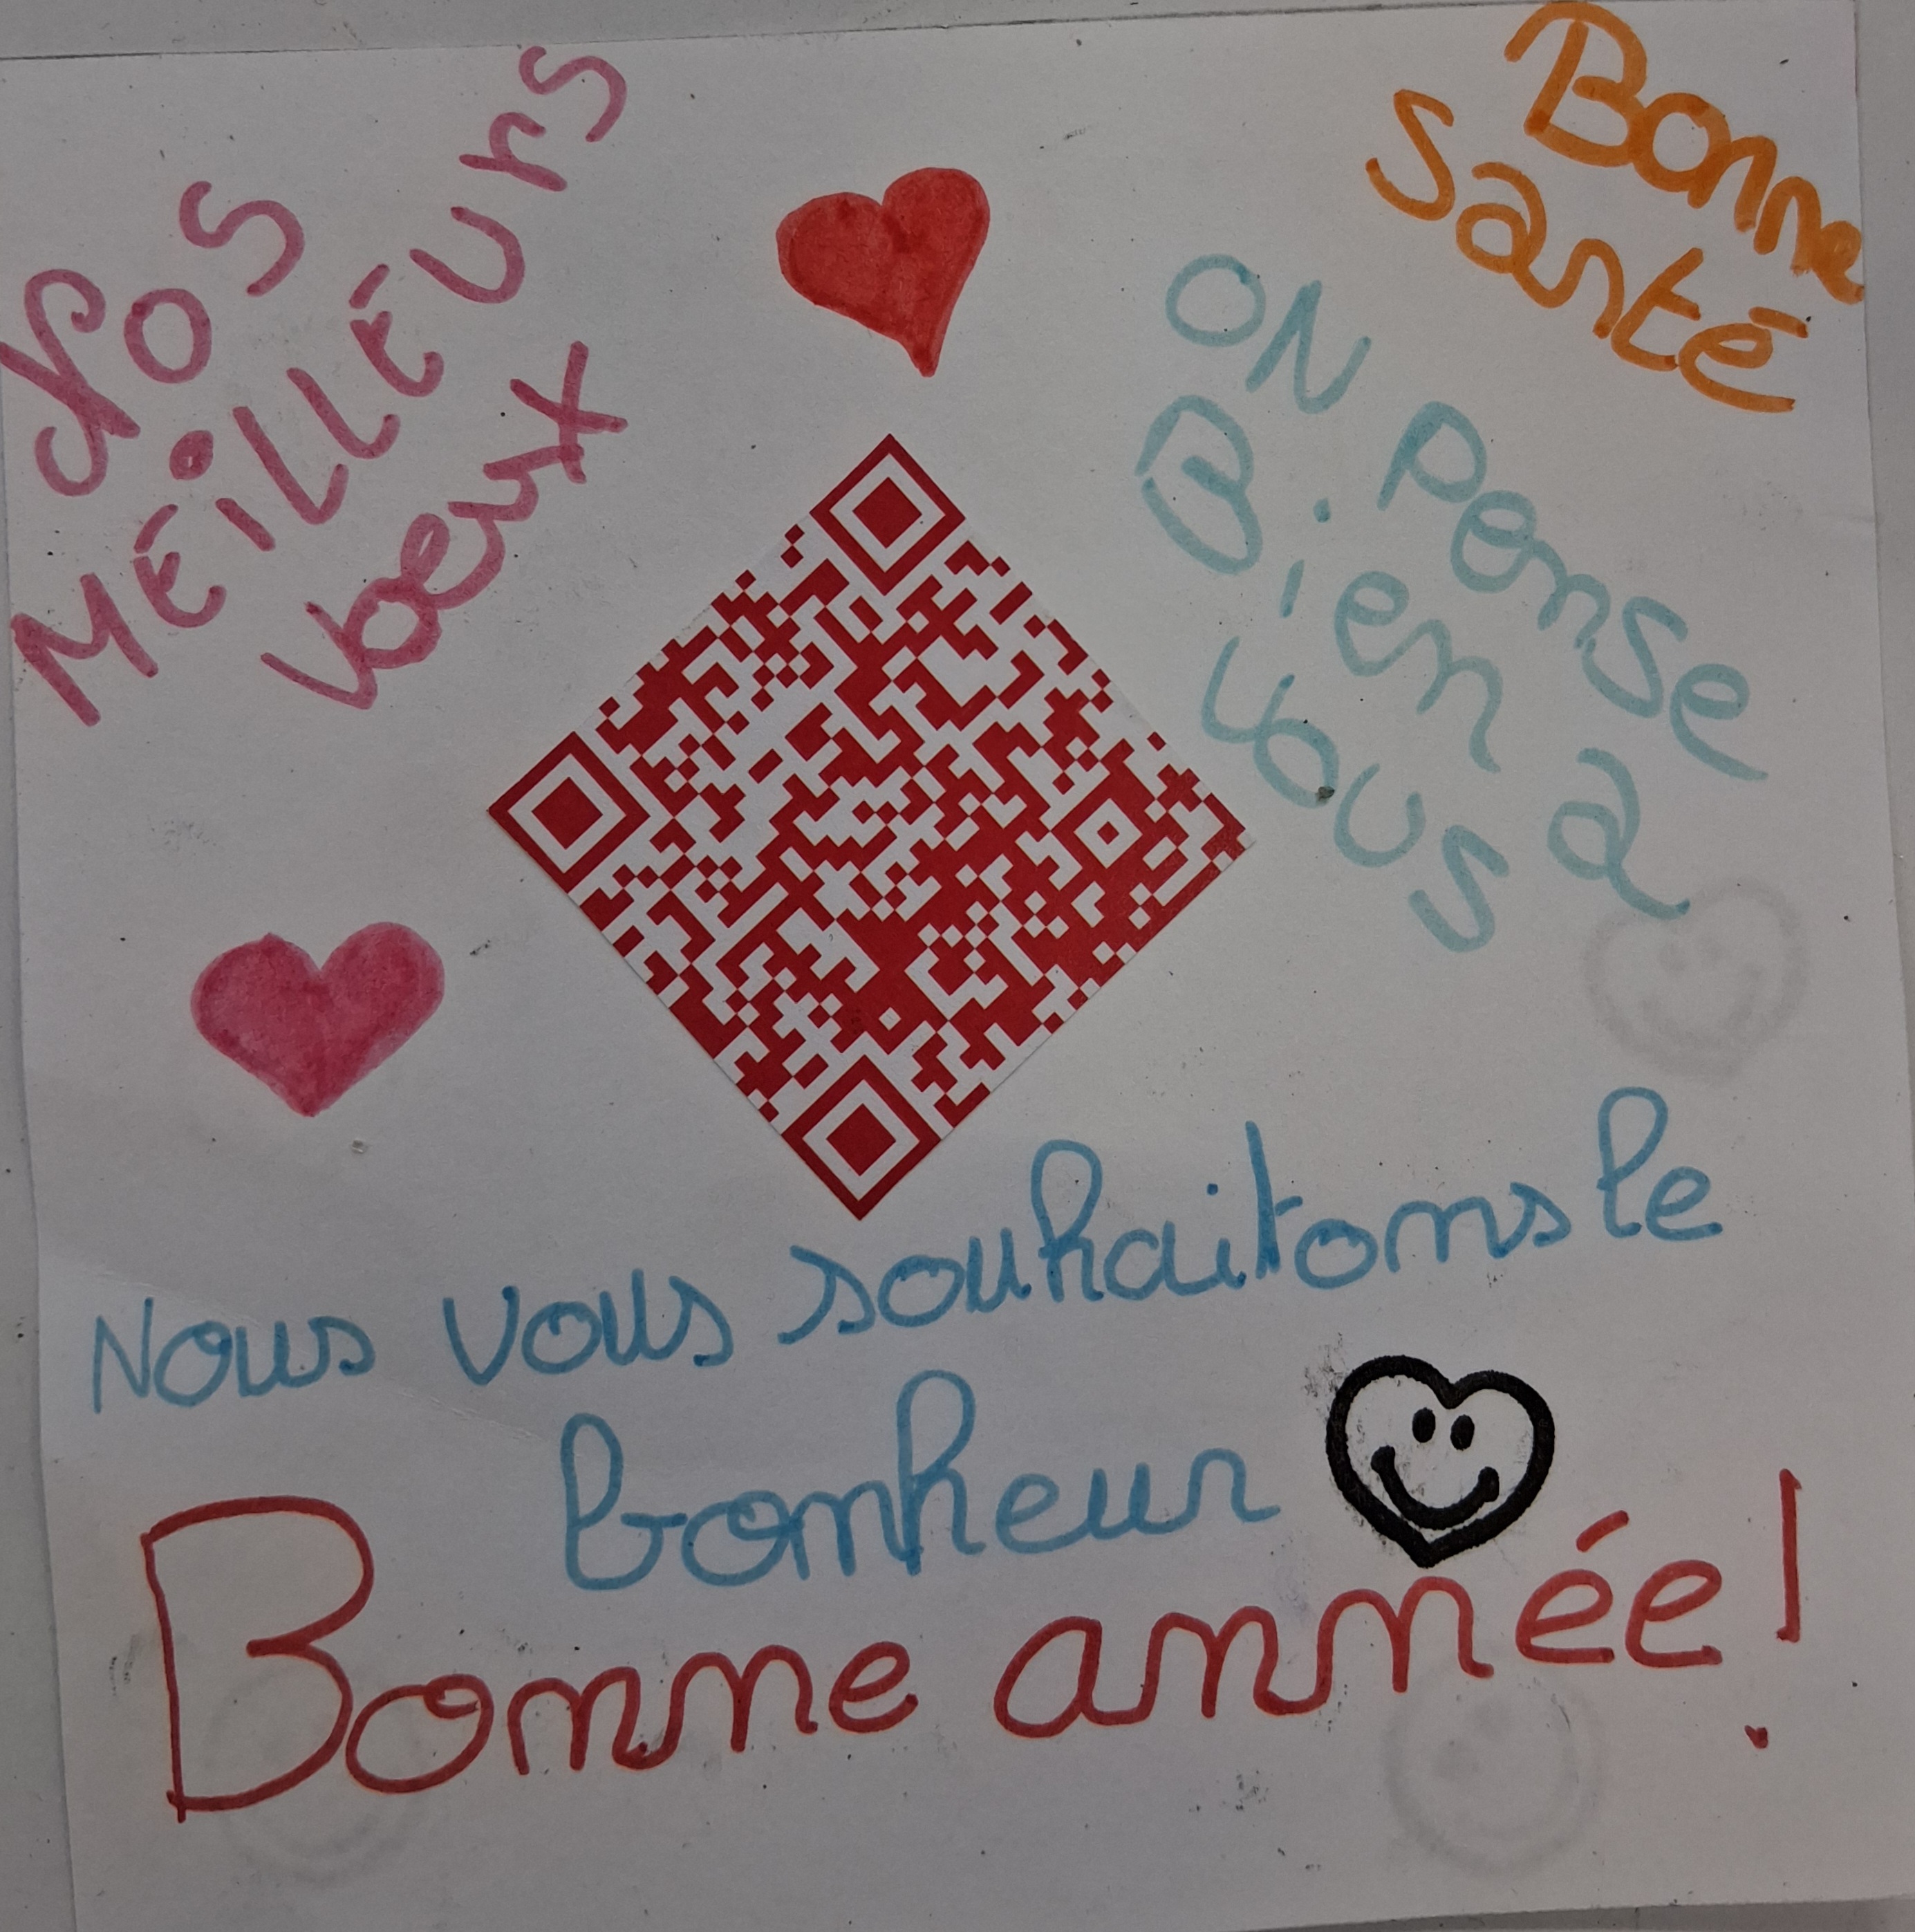 Nos
MEiLLEURS
voeux
Bonne
santé
ON Pense
Bien a
vous
Nous vous souhaitons le
bonheur
Bonne année !